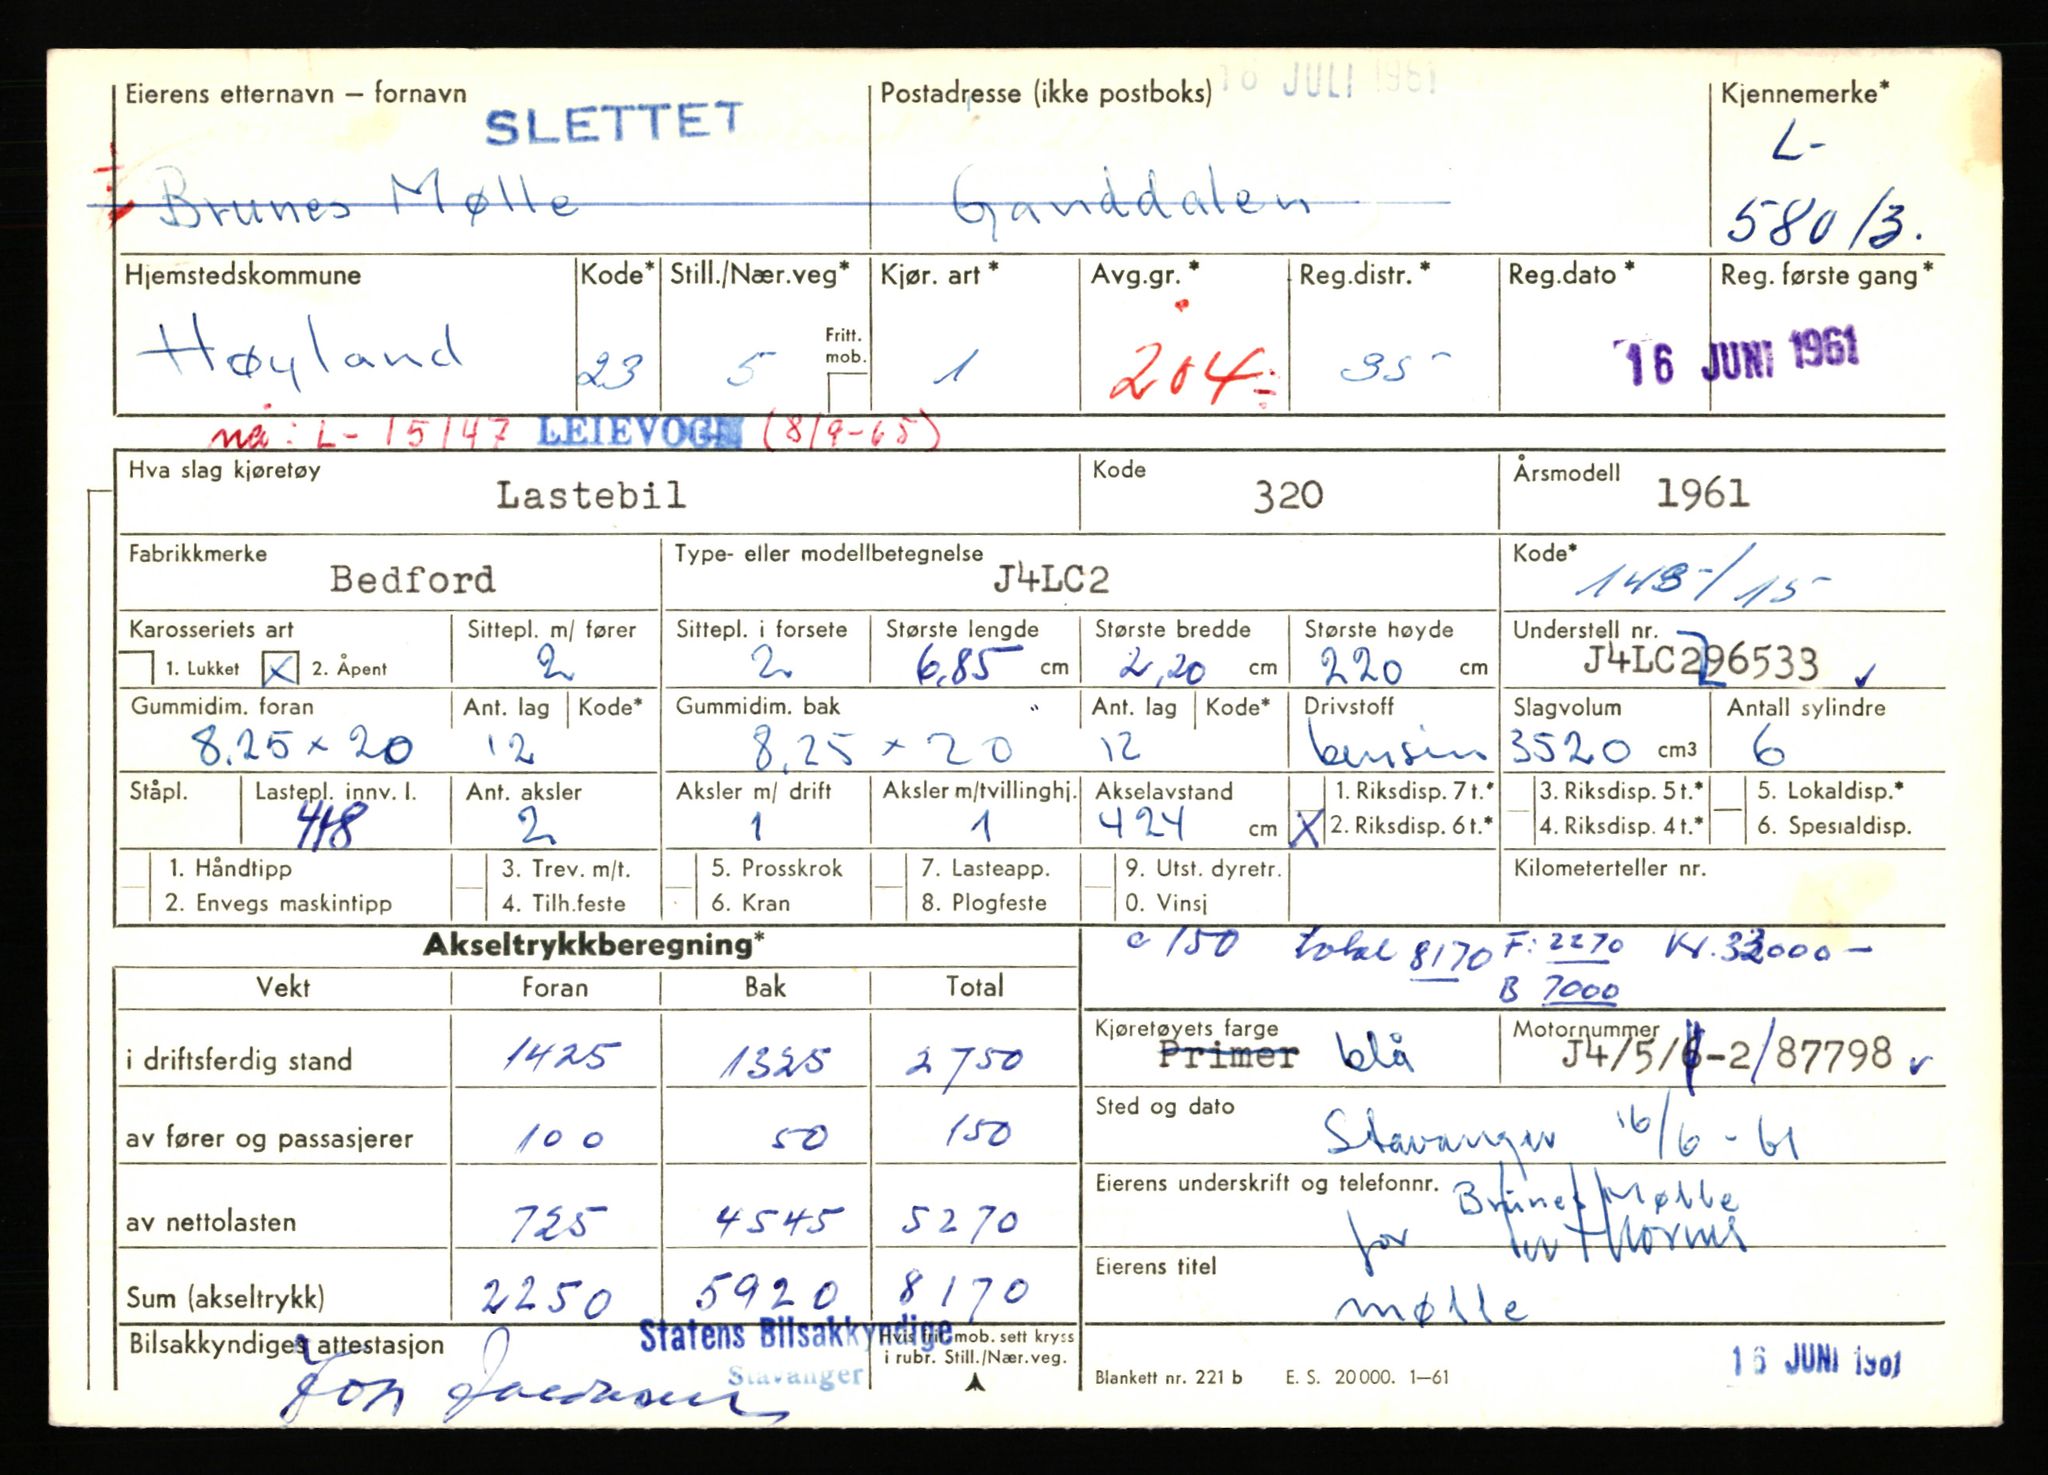 16 JULI 1961
Eierens etternavn – fornavn Postadresse (ikke postboks) Kjennemerke*
SLETTET
L-
Brunes Mølle Ganddalen 580/3.
Hjemstedskommune Kode* Still./Nær.veg* Kjør. art* Avg.gr.* Reg.distr.* Reg.dato* Reg. første gang*
Fritt. mob.
Høyland 23 5 1 204 35 16 JUNI 1961
nå: L-15147 LEIEVOGN (8/9-65)
Hva slag kjøretøy Kode Årsmodell
Lastebil 320 1961
Fabrikkmerke Type- eller modellbetegnelse Kode*
Bedford J4LC2 143-/15-
Karosseriets art Sittepl. m/ fører Sittepl. i forsete Største lengde Største bredde Største høyde Understell nr.
1. Lukket X 2. Åpent 2 2 6,85 cm 2,20 cm 220 cm J4LC296533
Gummidim. foran Ant. lag Kode* Gummidim. bak Ant. lag Kode* Drivstoff Slagvolum Antall sylindre
8.25 x 20 12 8.25 x 20 12 bensin 3520 cm3 6
Ståpl. Lastepl. innv. l. Ant. aksler Aksler m/ drift Aksler m/tvillinghj. Akselavstand 1. Riksdisp. 7 t.* 3. Riksdisp. 5 t.* 5. Lokaldisp.*
418 2 1 1 424 cm X 2. Riksdisp. 6 t.* 4. Riksdisp. 4 t.* 6. Spesialdisp.
1. Håndtipp 3. Trev. m/t. 5. Prosskrok 7. Lasteapp. 9. Utst. dyretr. Kilometerteller nr.
2. Envegs maskintipp 4. Tilh.feste 6. Kran 8. Plogfeste 0. Vinsj
Akseltrykkberegning* c 150 total 8170 F: 2270 Kr. 32000-
B 7000
Vekt Foran Bak Total
Kjøretøyets farge Motornummer
i driftsferdig stand 1425 1325 2750 Primer blå J4/5/6-2/87798
Sted og dato
av fører og passasjerer 100 50 150 Stavanger 16/6-61
Eierens underskrift og telefonnr. Brunes Mølle
av nettolasten 725 4545 5270 for
Eierens titel
Sum (akseltrykk) 2250 5920 8170 mølle
Bilsakkyndiges attestasjon Statens Bilsakkyndige Hvis fritt mob. sett kryss
Stavanger i rubr. Still./Nær.veg.
Blankett nr. 221 b E. S. 20000. 1–61 16 JUNI 1961